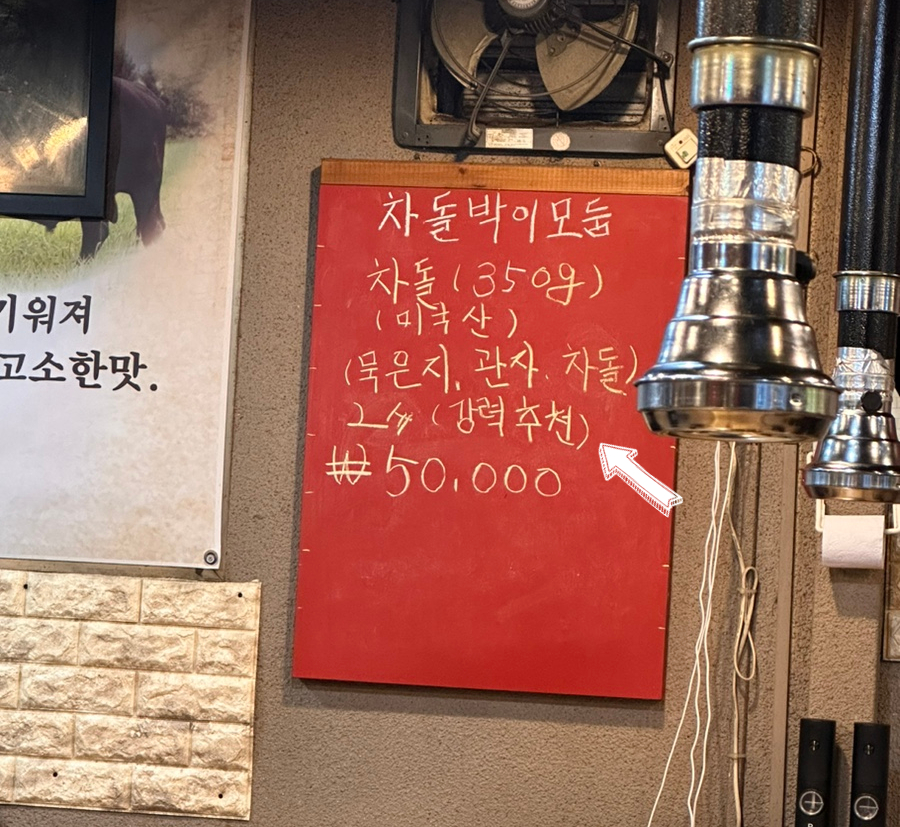 기워져
고소한맛.
차돌박이모둠
차돌(350g)
(미국산)
(묵은지, 관자, 차돌)
(강력추천)
₩50,000